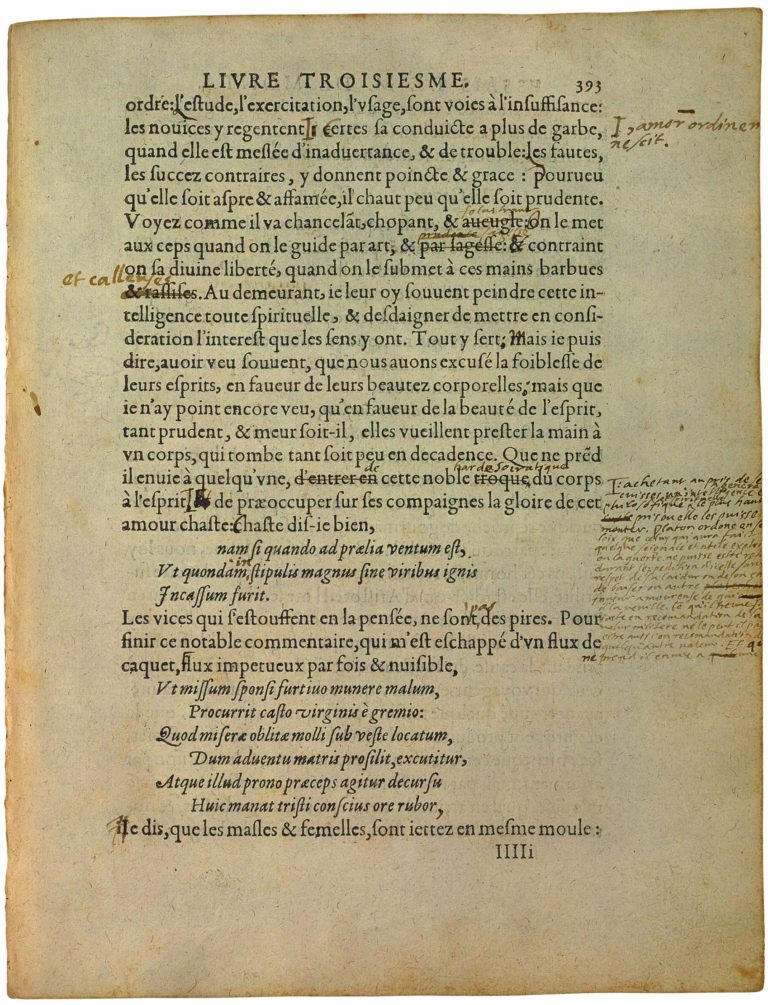 LIVRE TROISIESME. 393
ordre: L'estude, l'exercitation, l'vsage, sont voies à l'insuffisance:
les nouices y regentent: Certes sa conduicte a plus de garbe,
amor ordinem
nescit.
quand elle est meslée d'inaduertance, & de trouble: les fautes,
les succez contraires, y donnent poincte & grace : pourueu
qu'elle soit aspre & affamée, il chaut peu qu'elle soit prudente.
Voyez comme il va chancelãt, chopant, & aueugle: on le met
aux ceps quand on le guide par art, & par sagesse: & contraint
on sa diuine liberté, quand on le submet à ces mains barbues
et calleuses
& rassises. Au demeurant, ie leur oy souuent peindre cette in-
telligence toute spirituelle, & desdaigner de mettre en consi-
deration l'interest que les sens y ont. Tout y sert: Mais ie puis
dire, auoir veu souuent, que nous auons excusé la foiblesse de
leurs esprits, en faueur de leurs beautez corporelles; mais que
ie n'ay point encore veu, qu'en faueur de la beauté de l'esprit,
tant prudent, & meur soit-il, elles vueillent prester la main à
vn corps, qui tombe tant soit peu en decadence. Que ne prẽd
de
harde socratique
il enuie à quelqu'vne, d'entrer en cette noble troque, du corps
à l'esprit, & de præoccuper sur ses compaignes la gloire de cet
amour chaste: Chaste dis-ie bien,
nam si quando ad prælia ventum est,
in
Vt quondam, stipulis magnus sine viribus ignis
Incassum furit.
pas
Les vices qui s'estouffent en la pensée, ne sont des pires. Pour
finir ce notable commentaire, qui m'est eschappé d'vn flux de
caquet, flux impetueux par fois & nuisible,
Vt missum sponsi furtiuo munere malum,
Procurrit casto virginis è gremio:
Quod miseræ oblitæ molli sub veste locatum,
Dum aduentu matris prosilit, excutitur,
Atque illud prono præceps agitur decursu
Huic manat tristi conscius ore rubor,
Ie dis, que les masles & femelles, sont iettez en mesme moule :
IIIIi